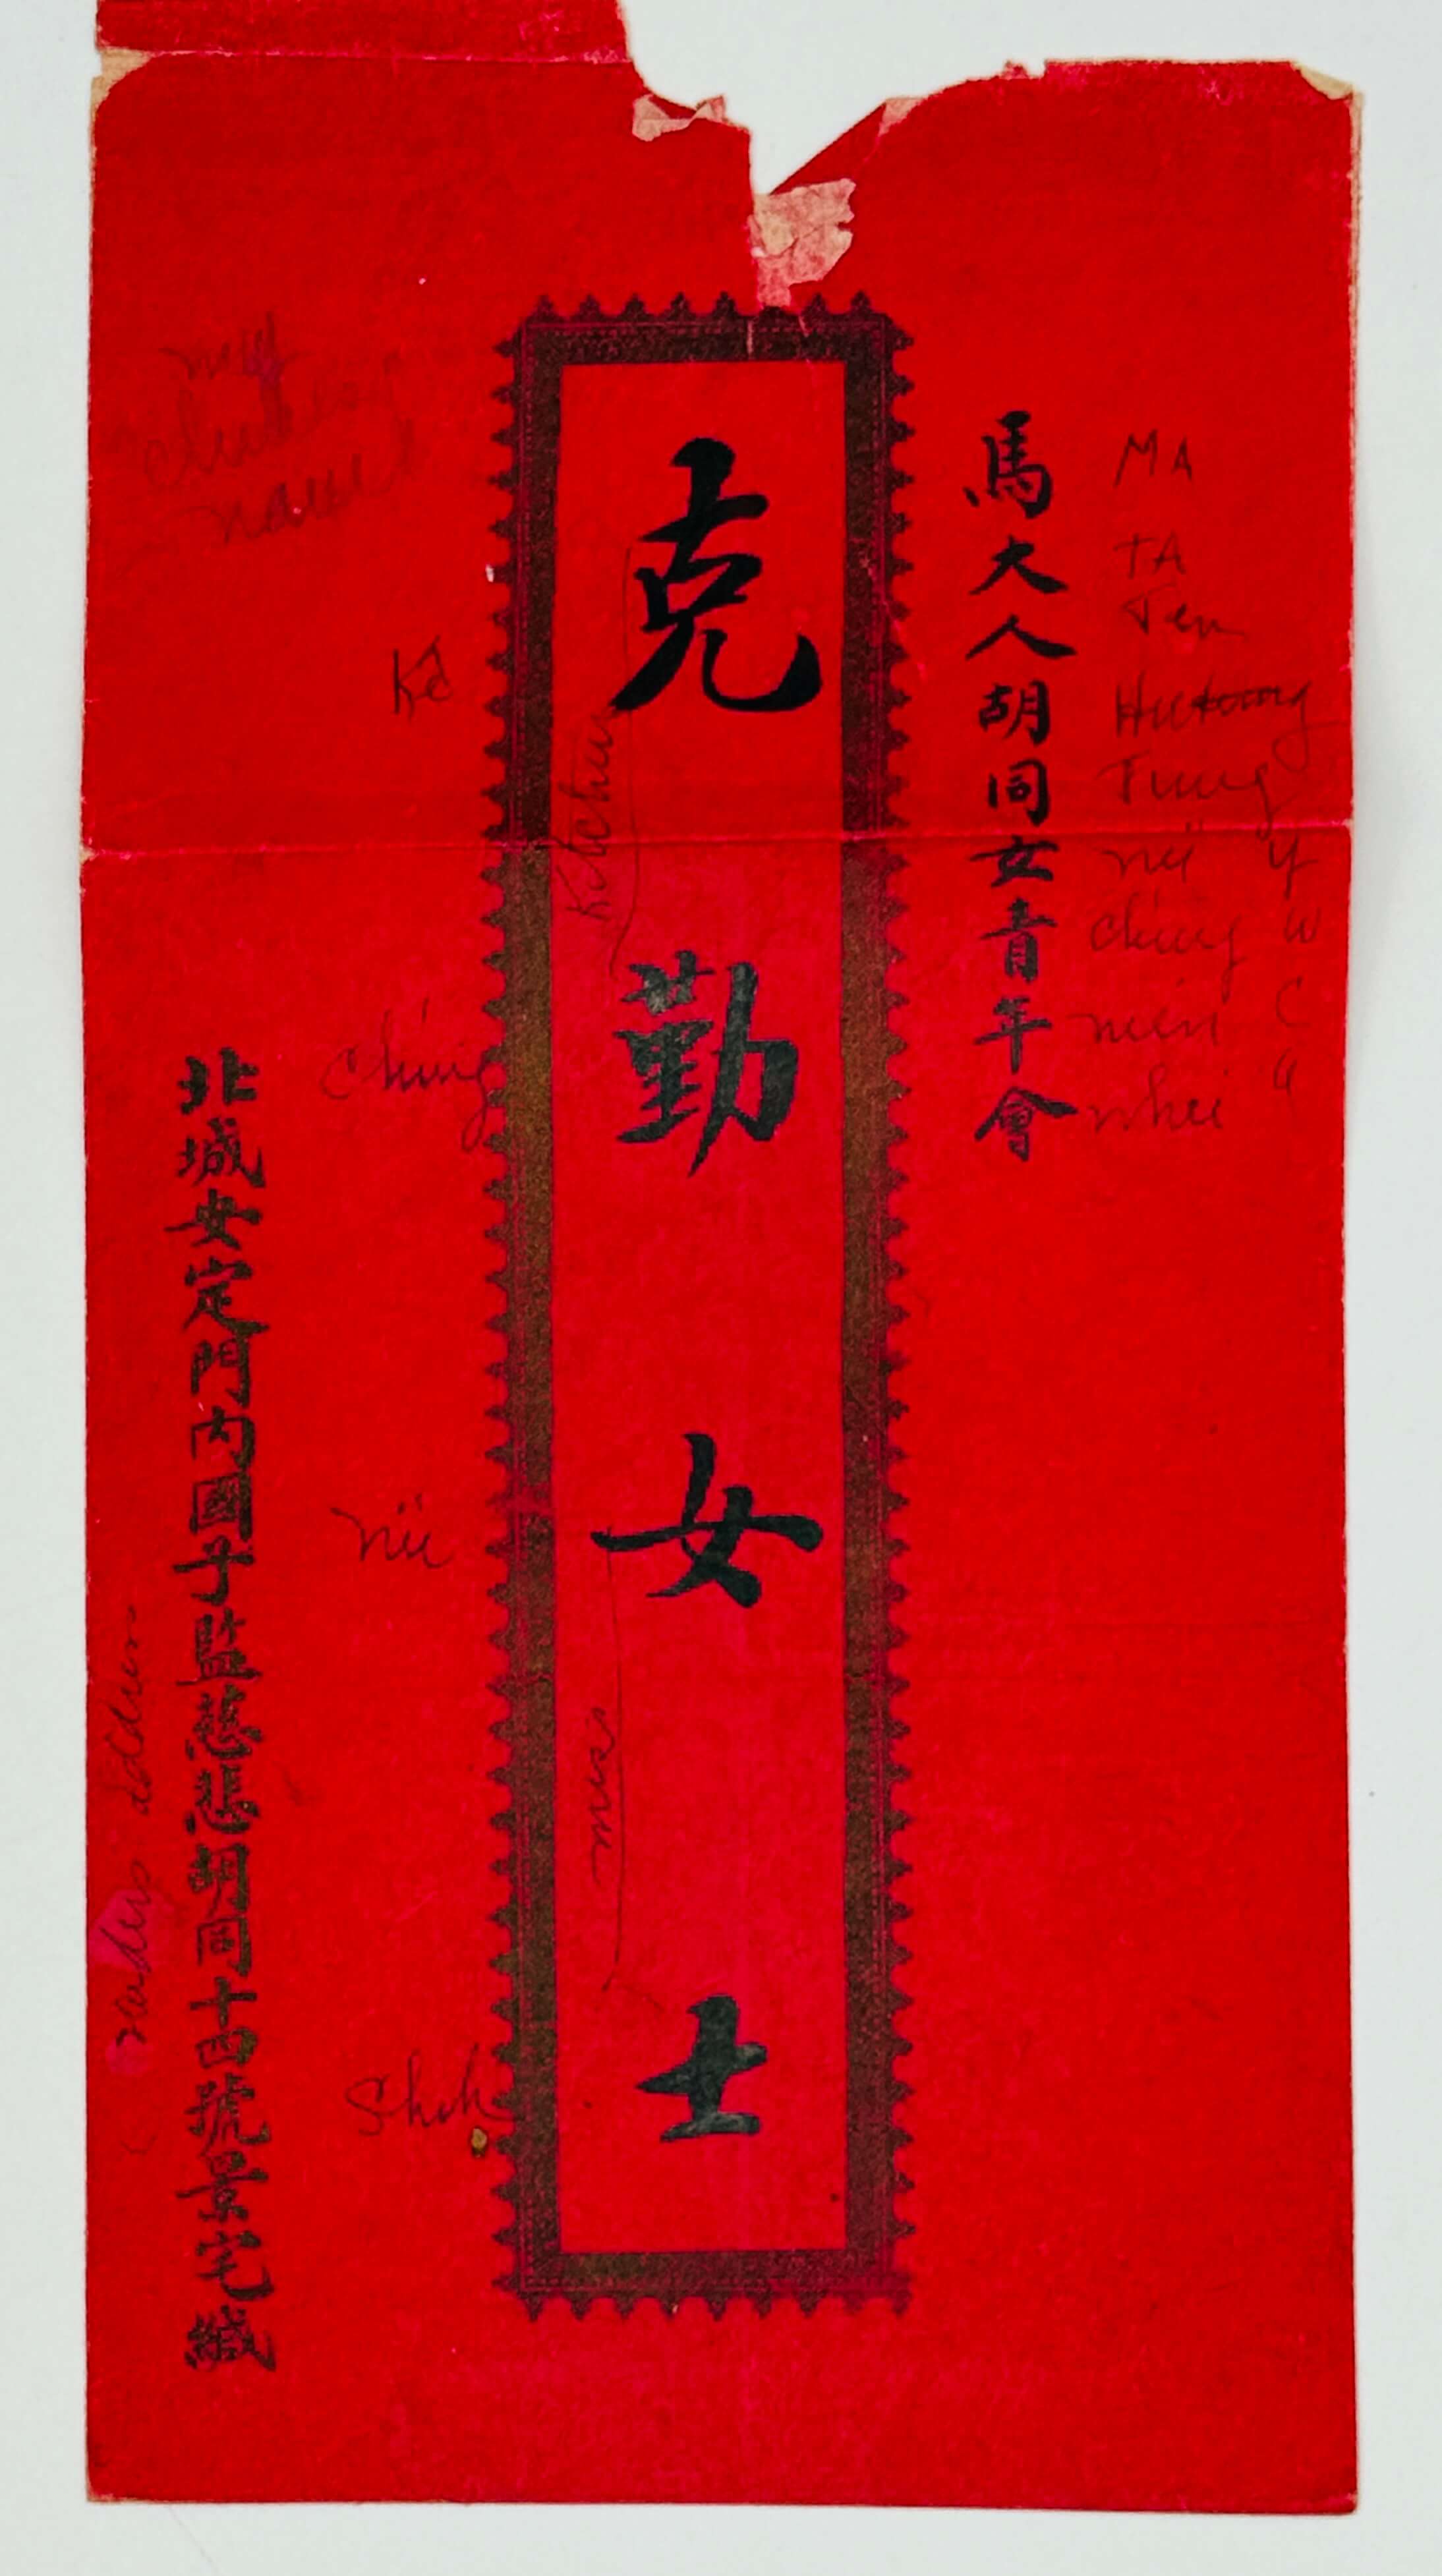 馬大人胡同女青年會
MA
TA
Jen
Hutung
Tung
nü Y
ching W
nien C
whei a
克勤女士
Kitchin
miss
my
chinese
name
Kê
Ching
nü
Shih
北城安定門内國子監慈悲胡同十四號景宅緘